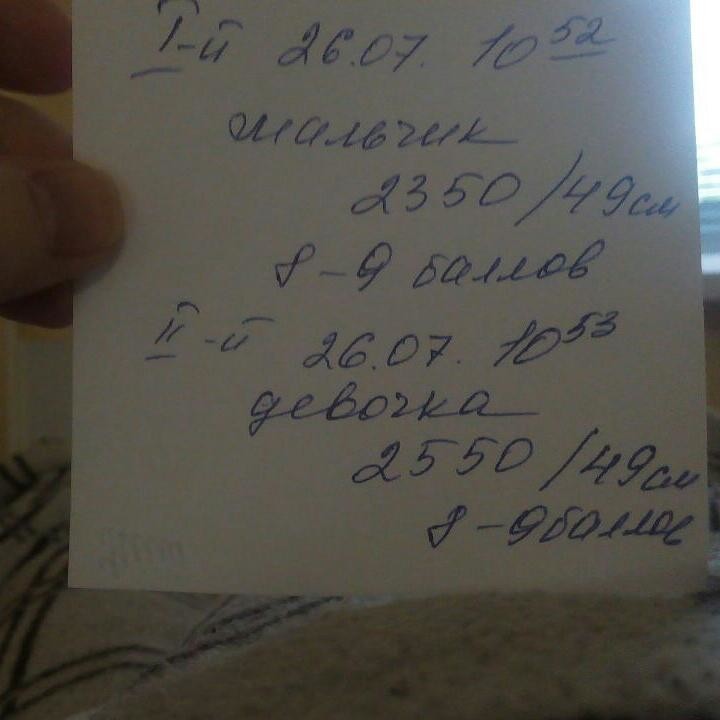 I-й 26.07. 10 52
мальчик
2350/49см
8-9 баллов
II-й 26.07. 10 53
девочка
2550/49см
8-9 баллов